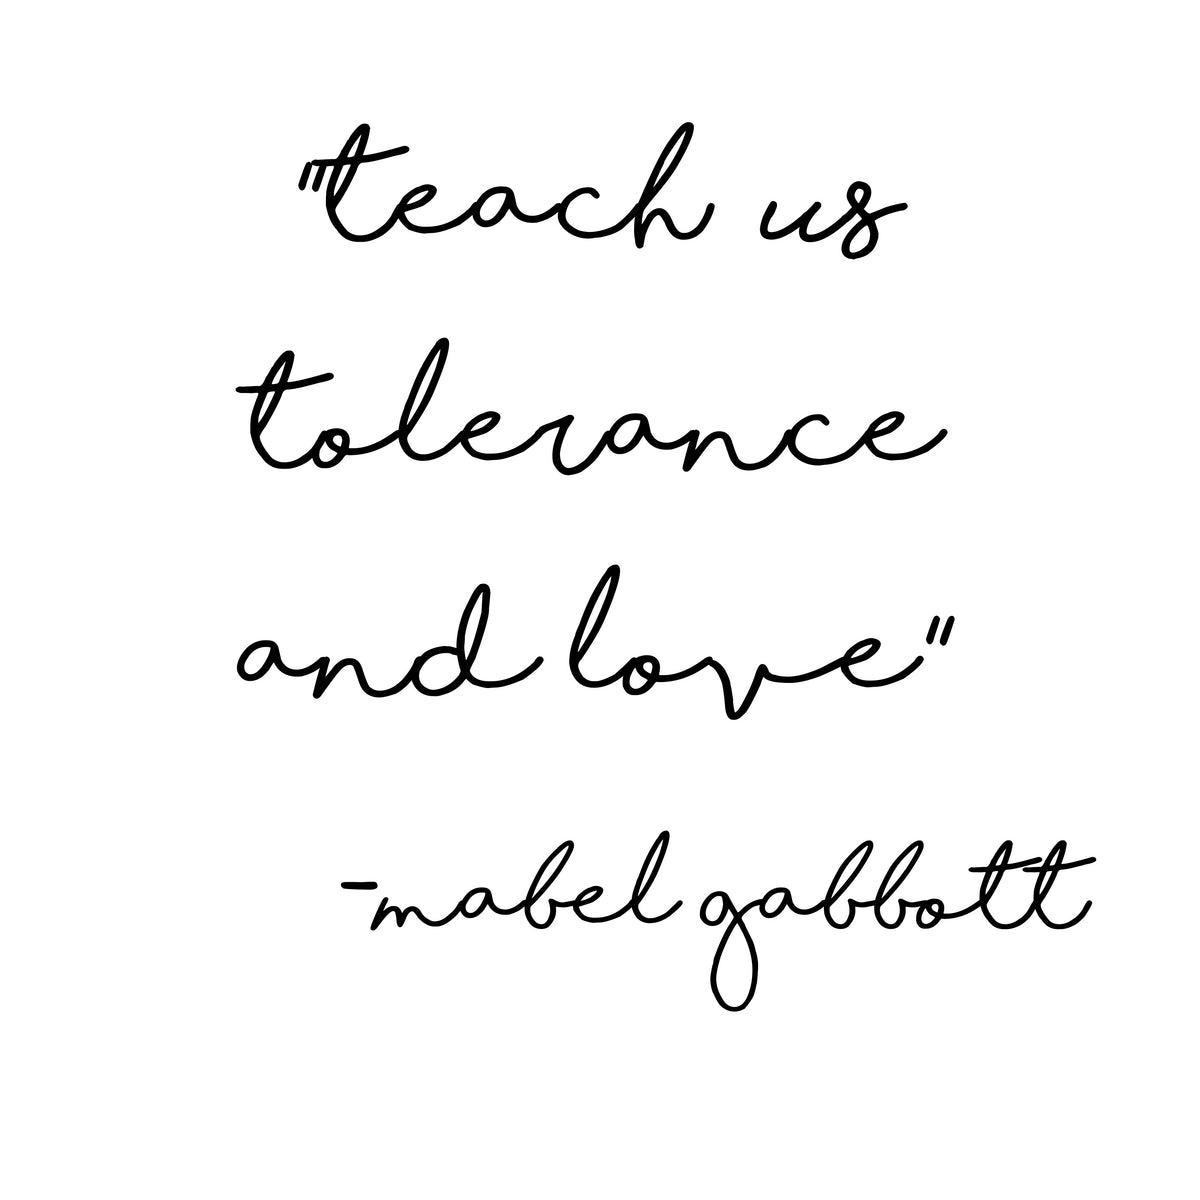 "teach us
tolerance
and love"
-mabel gabbott